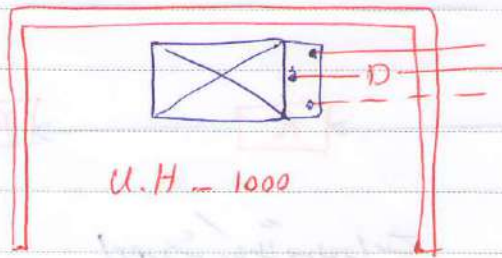 D
U.H - 1000